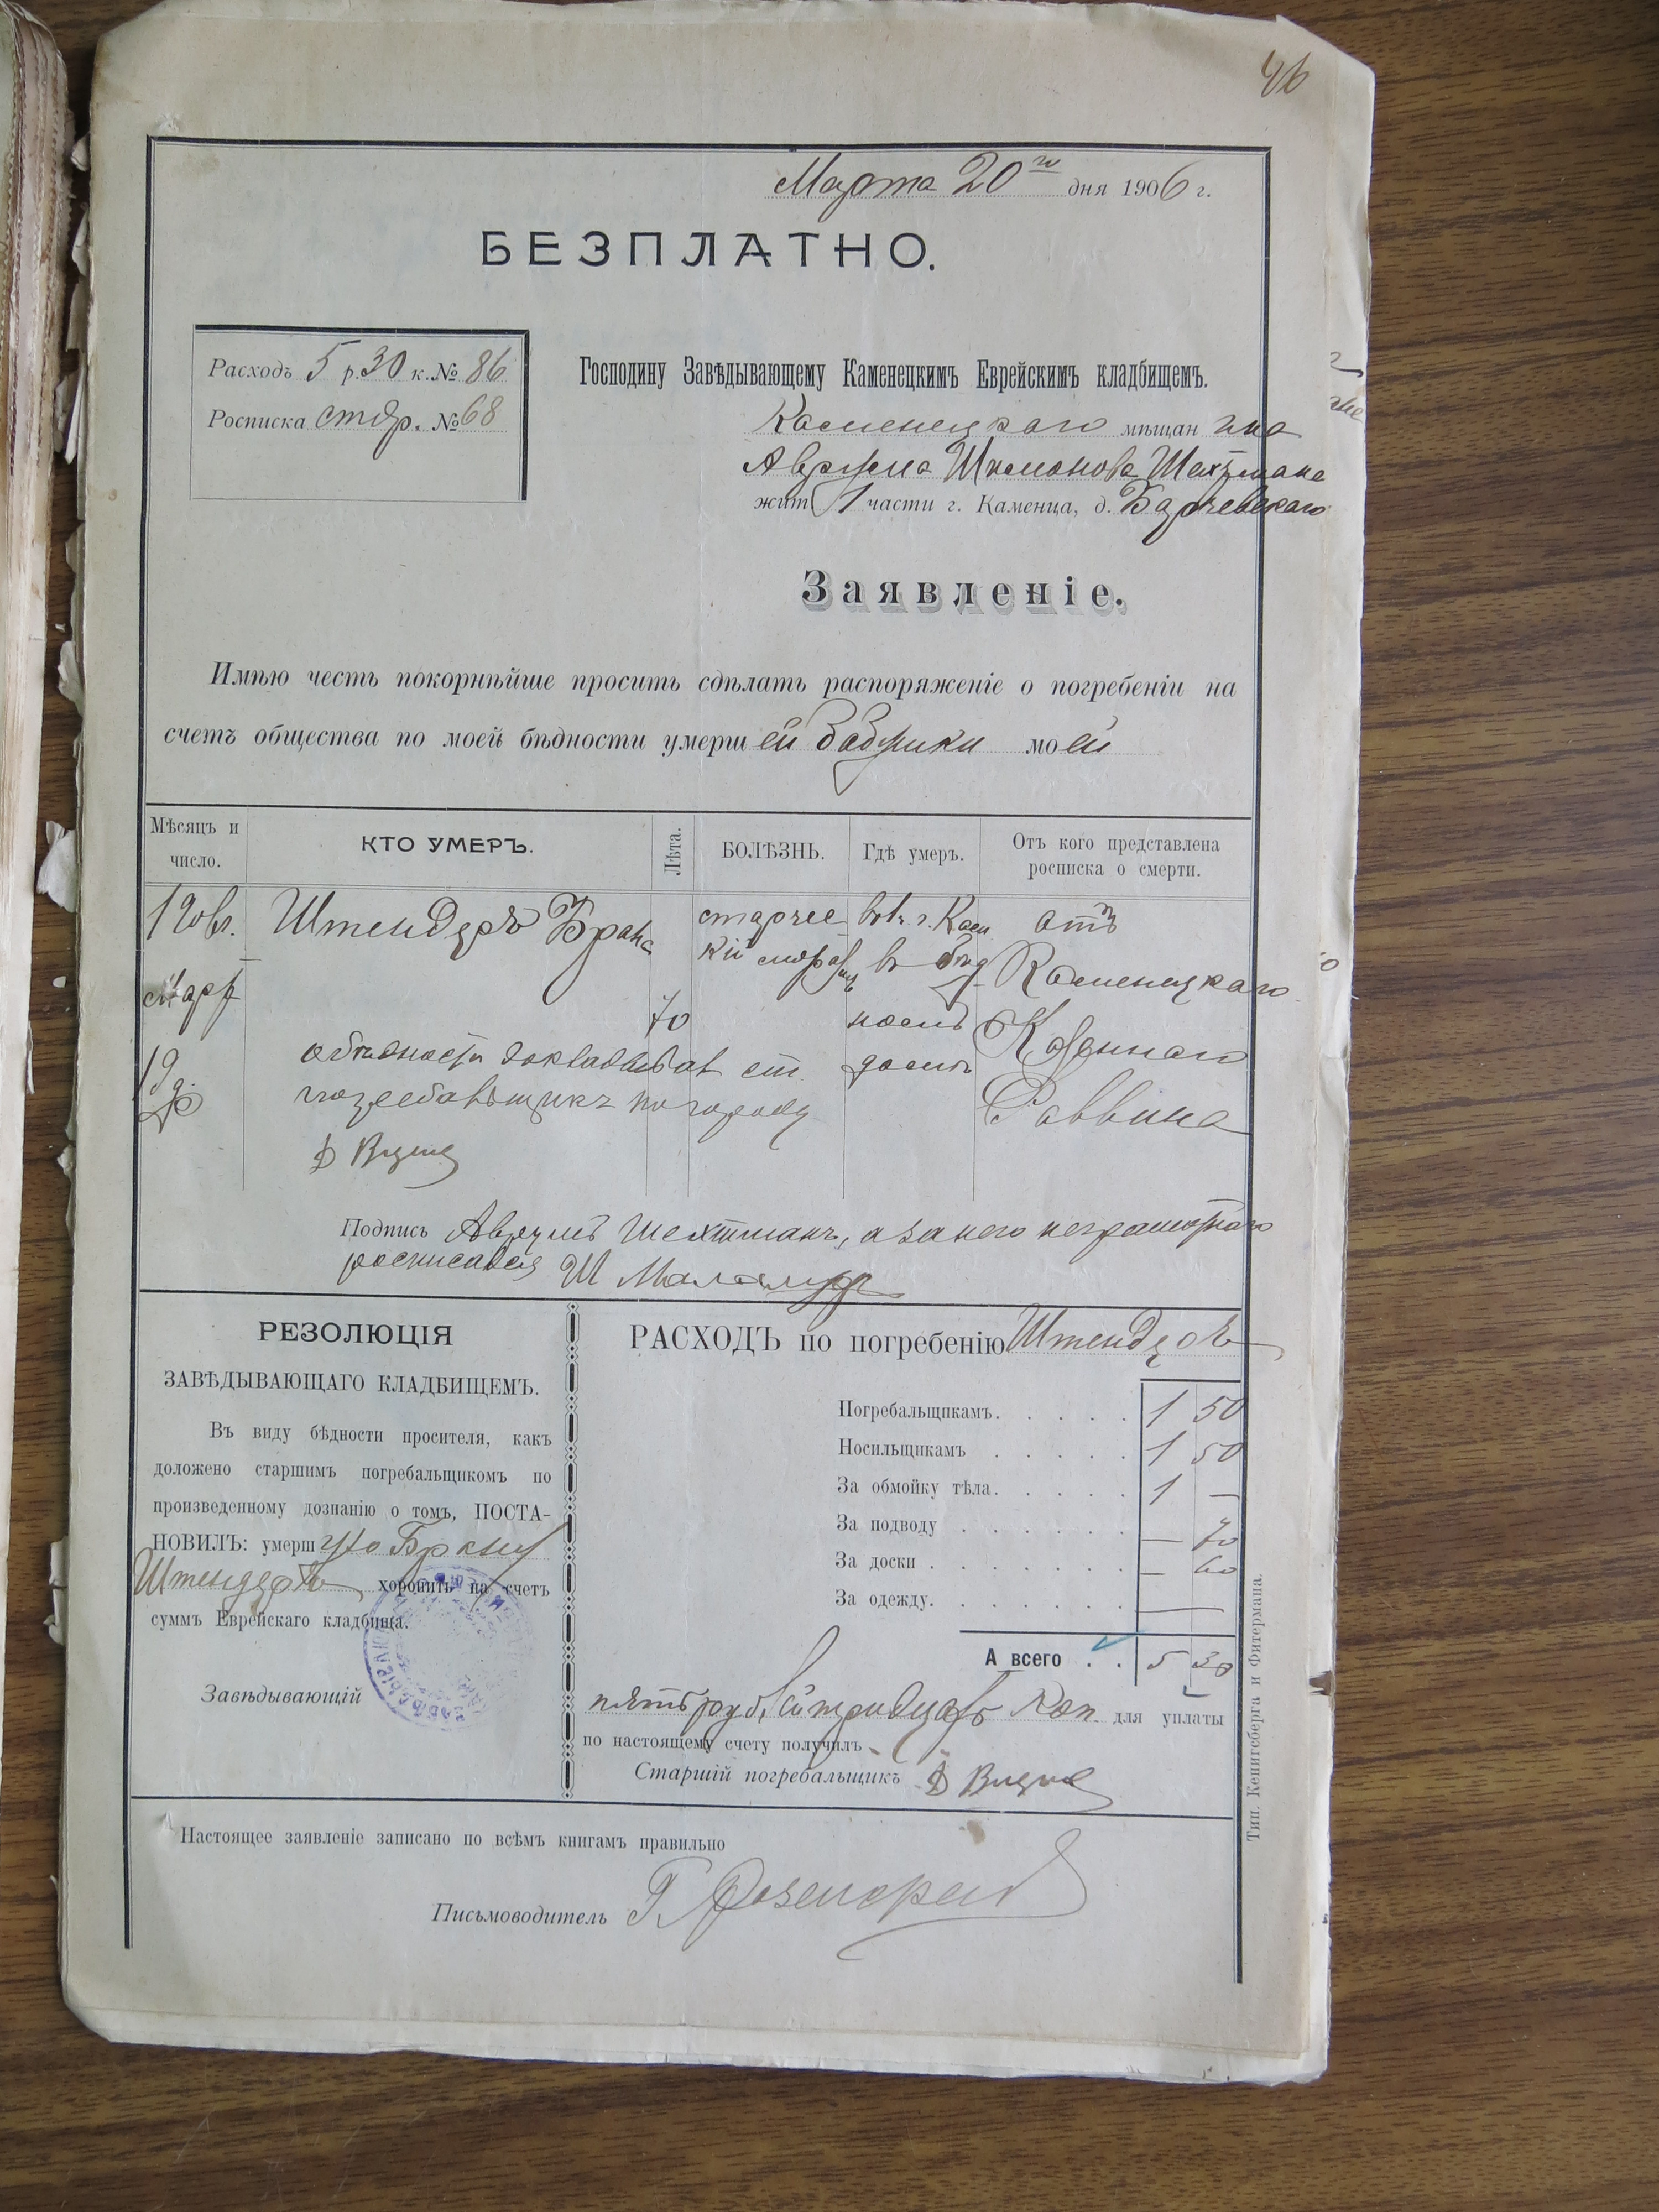 46
Марта 20го дня 1906 г.
БЕЗПЛАТНО.
Расходъ 5 р. 30 к. № 86
Росписка стар. № 68
Господину Завѣдывающему Каменецкимъ Еврейскимъ кладбищемъ.
Каменецкаго мѣщанина
Аврума Шимонова Шехтмана
жит 1 части г. Каменца, д. Барчевскаго
Заявленіе.
Имѣю честь покорнѣйше просить сдѣлать распоряженіе о погребеніи на
счетъ общества по моей бѣдности умершей бабушки моей
Мѣсяцъ и число. КТО УМЕРЪ. Лѣта. БОЛѢЗНЬ. Гдѣ умеръ. Отъ кого представлена росписка о смерти.
Штендеръ Брана старчес въ г. Кам отъ
кій маразмъ в бѣд Каменецкаго
Март
70 номъ Казеннаго
19 домѣ
Раввина
погребальщикъ по городу
Подпись Аврумъ Шехтманъ, а за него неграмотнаго
росписался Ш Маламудъ
РЕЗОЛЮЦІЯ
ЗАВѢДЫВАЮЩАГО КЛАДБИЩЕМЪ.
Въ виду бѣдности просителя, какъ
доложено старшимъ погребальщикомъ по
произведенному дознанію о томъ, ПОСТА-
НОВИЛЪ: умершую Брану
Штендеръ хоронить на счетъ
суммъ Еврейскаго кладбища.
Завѣдывающій
РАСХОДЪ по погребенію Штендеръ
Погребальщикамъ. . . . . . 1 50
Носильщикамъ . . . . . 1 50
За обмойку тѣла. . . . . . 1 —
За подводу . . . . . . — 70
За доски . . . . . . . — 60
За одежду. . . . . . . —
А всего . . 5 30
пять руб. и тридцать коп для уплаты
по настоящему счету получилъ
Старшій погребальщикъ
Настоящее заявленіе записано по всѣмъ книгамъ правильно
Письмоводитель Г. Розенкранц
Тип. Кенигсберга и Фитермана.